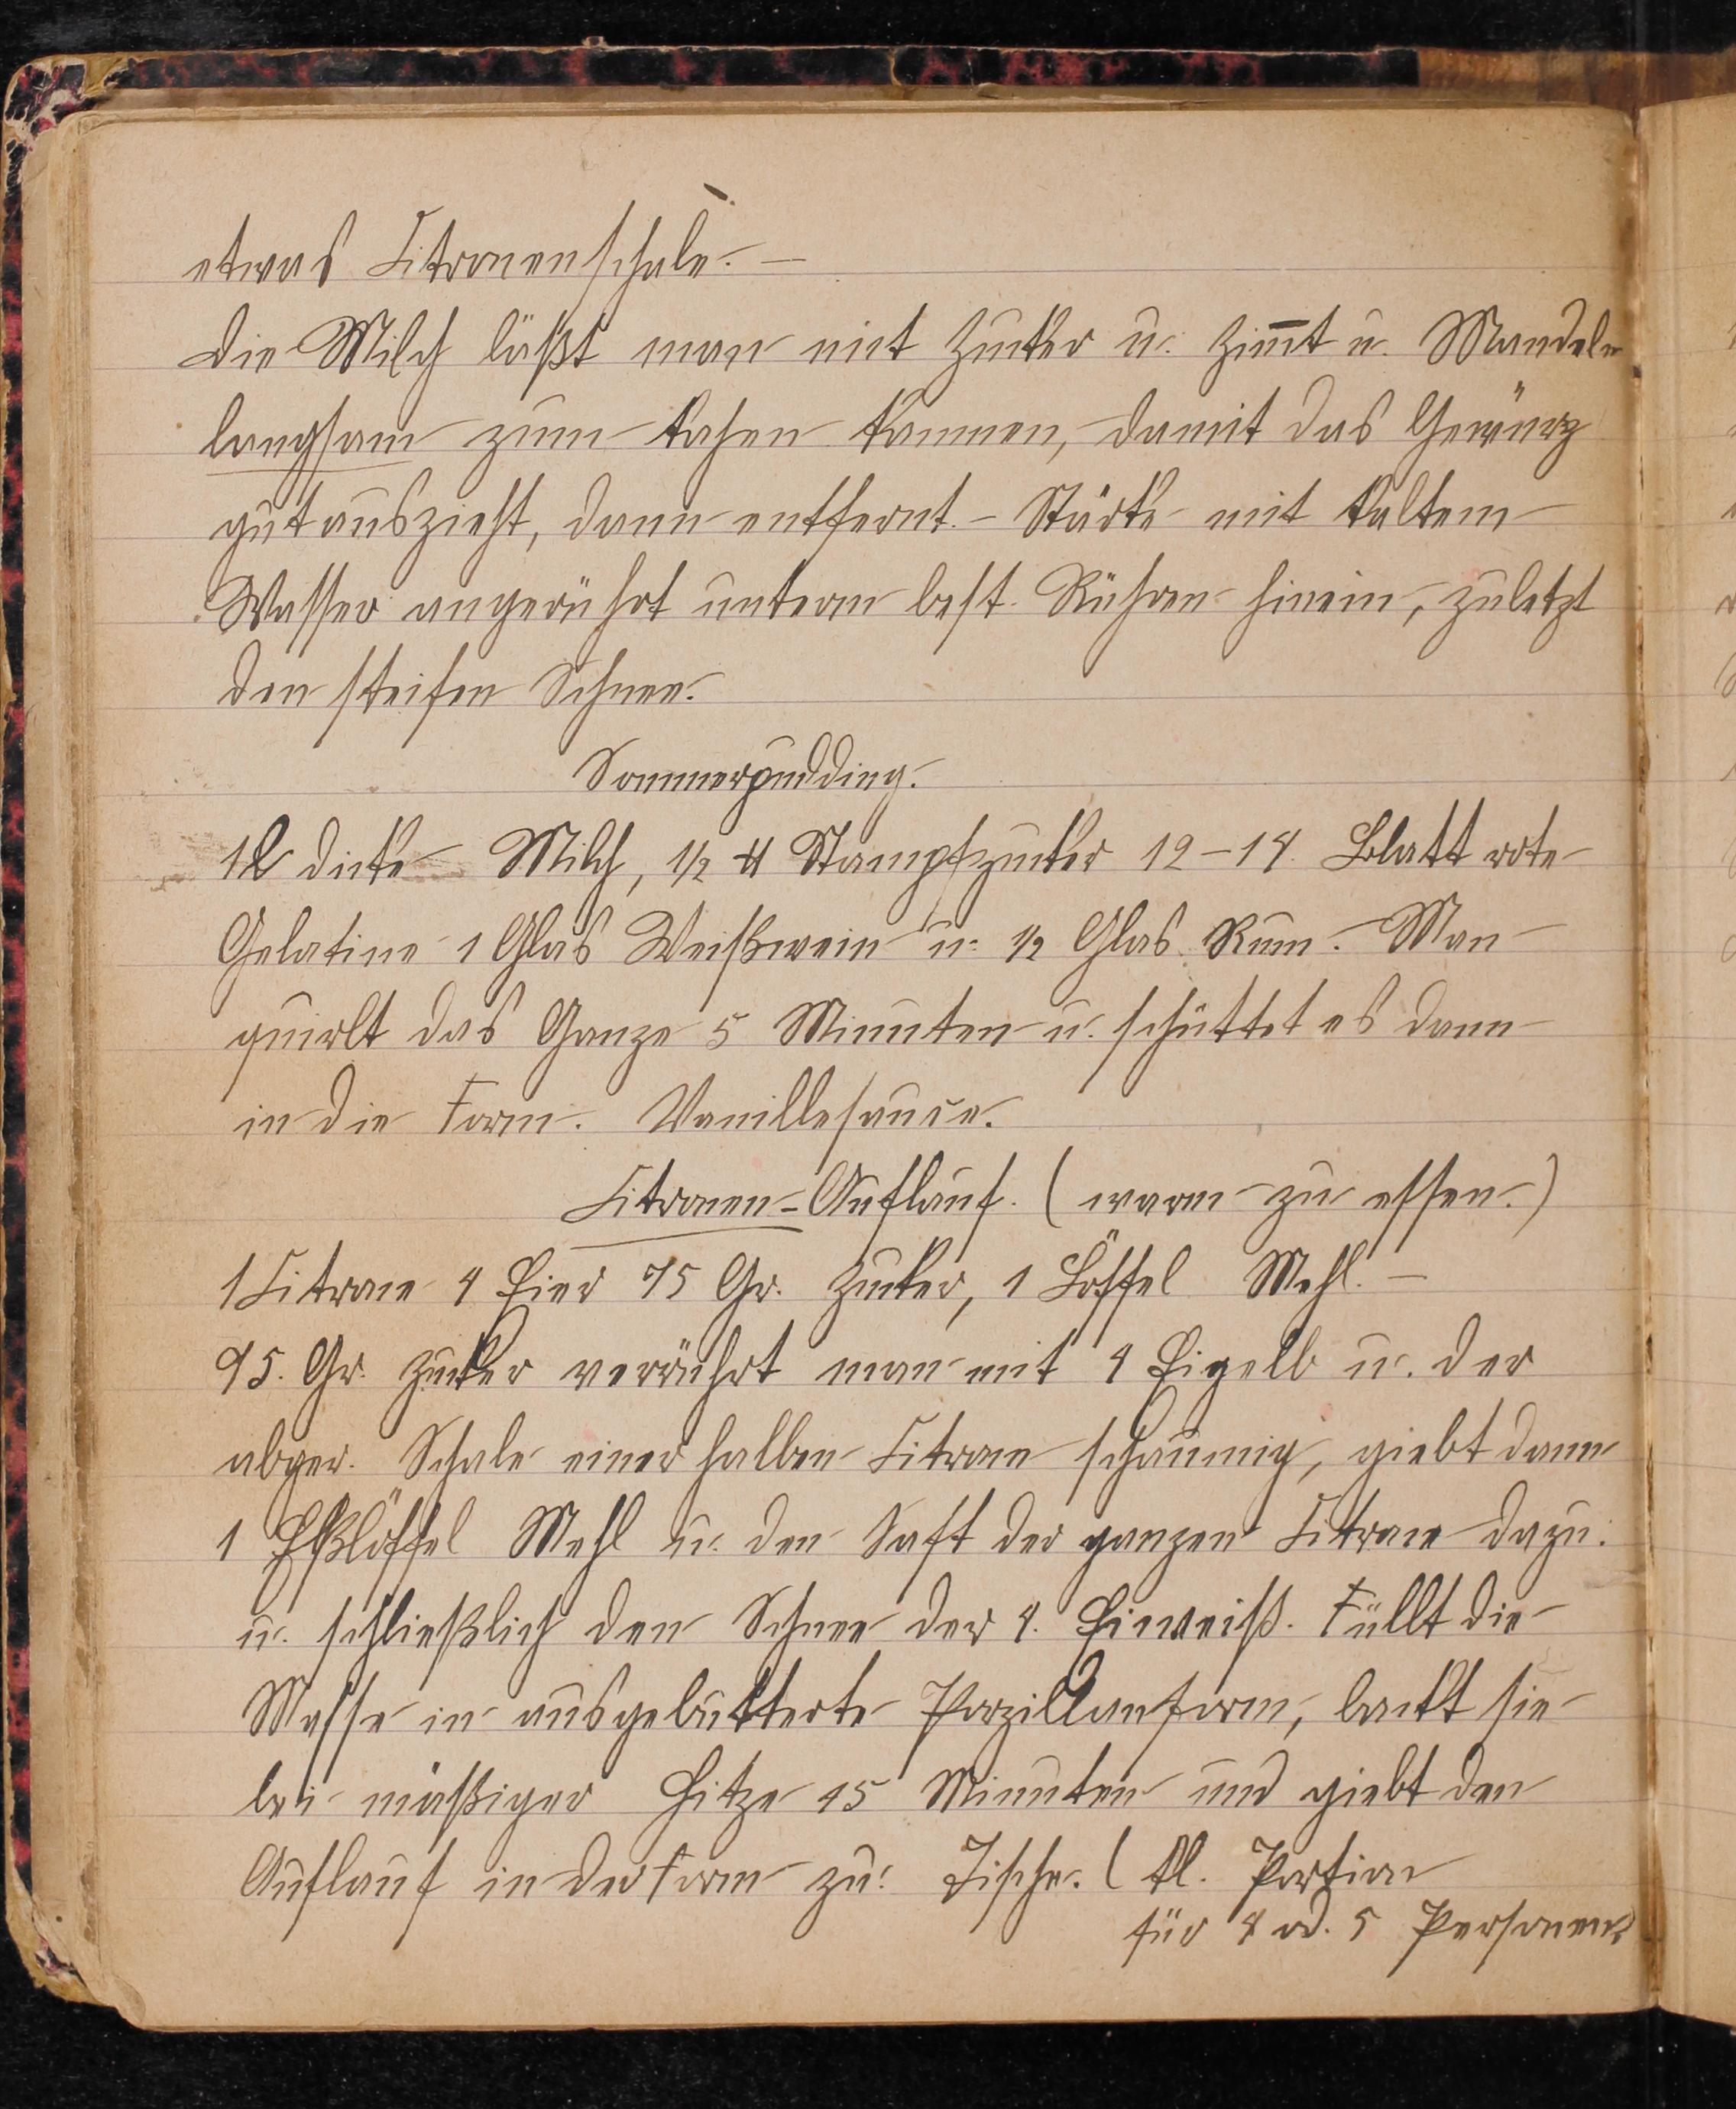 etwas Citronenschale. —
Die Milch läßt man mit Zucker u. Zim̅t u. Mandeln
langsam zum kochen kommen, damit das Gewürz
gut auszieht, dann entfernt. – Stärke mit kaltem
Wasser angerührt unterm best. Rühren hinein, zuletzt
den steifen Schnee.
Sommerpudding.
1 l dicke Milch, 1/2 ℔ Stampfzucker 12–14. Blatt rote
Gelatine 1 Glas Weißwein u. 1/2 Glas Rum. Man
quirlt das Ganze 5 Minuten u. schüttet es dann
in die Form. Vanillesauce.
Citronen-Auflauf. (warm zu essen.)
1 Citrone 4 Eier 75 Gr. Zucker, 1 Löffel Mehl. —
75. Gr. Zucker verrührt man mit 4 Eigelb u. der
abger. Schale einer halben Citrone schaumig, giebt dann
1 Eßlöffel Mehl u. den Saft der ganzen Citrone dazu.
u. schließlich den Schnee der 4. Eiweiß. Füllt die
Masse in ausgebutterte Porzillanform, backt sie
bei mäßiger Hitze 15 Minuten und giebt den
Auflauf in der Form zu Tische. (kl. Portion
für 4 od. 5 Personen)